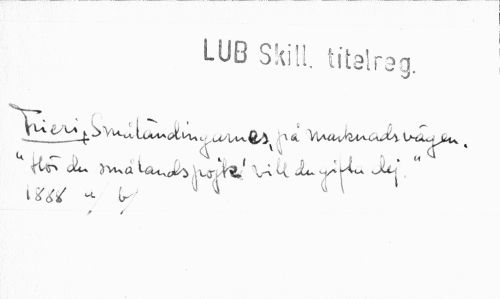 LUB Skill. titelreg.
Frieri, Småländingarnes, på marknadsvägen.
"Hör du smålandspojk' vill du gifta dej."
1888 u/ b/